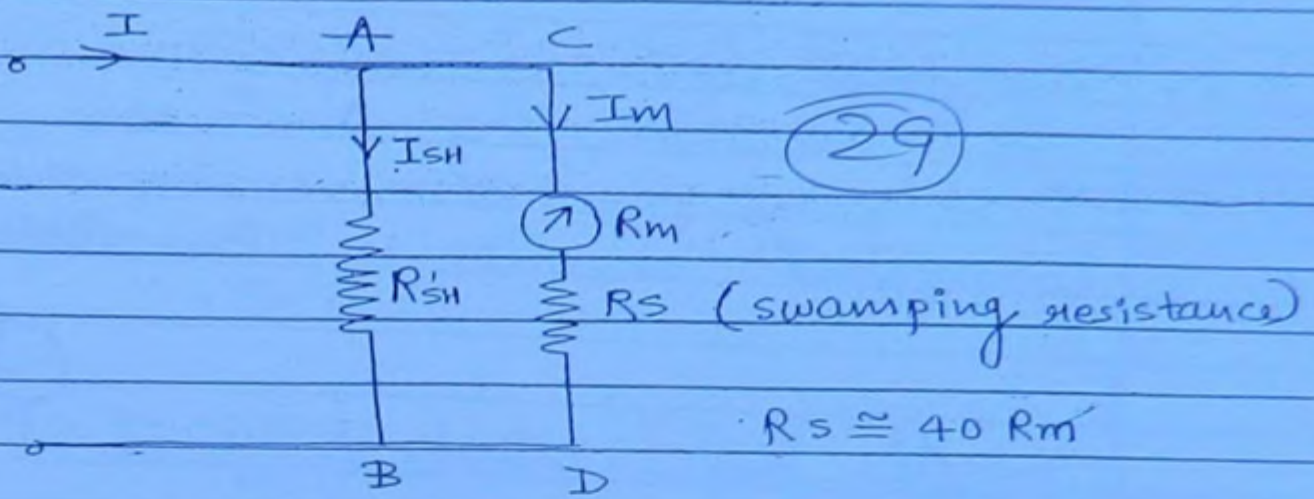 I A C
Im
29
ISH
Rm
R'SH RS (swamping resistance)
RS ≅ 40 Rm
B D